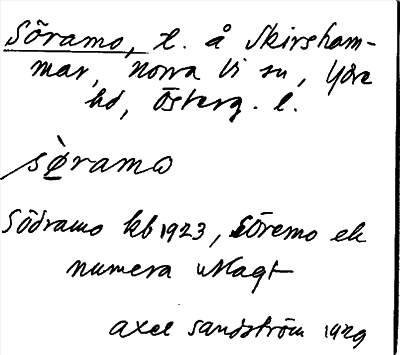 Söramo, t. å Skirsham-
mar, Norra Vi sn, Ydre
hd, Österg. l.
sø̀ramo
Södramo kb 1923, Söremo ek
numera utlagt
Axel Sandström 1929